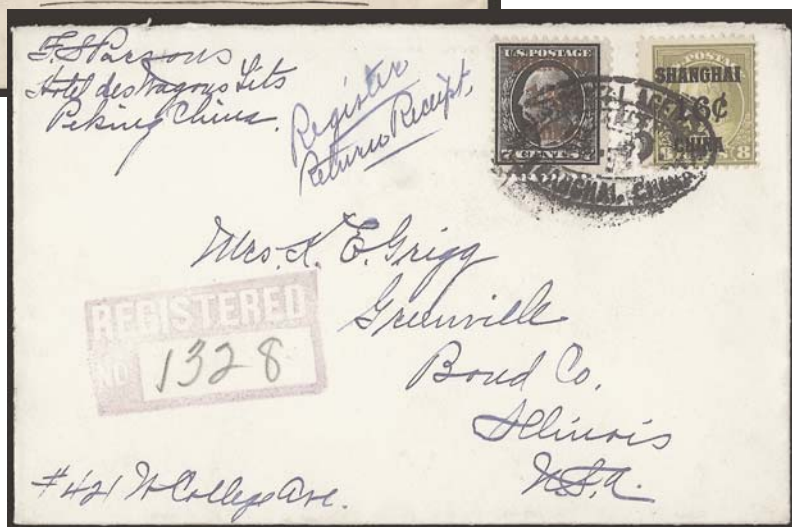 F. S. Parsons
Hotel des Wagons Lits
Peking China.
Register
Return Receipt.
U.S. POSTAGE
7 CENTS 7
SHANGHAI
16¢
CHINA
8
SHANGHAI, CHINA
Mrs. K. E. Grigg
Greenville
Bond Co.
Illinois
U.S.A.
REGISTERED
NO 1328
#421 W College Ave.